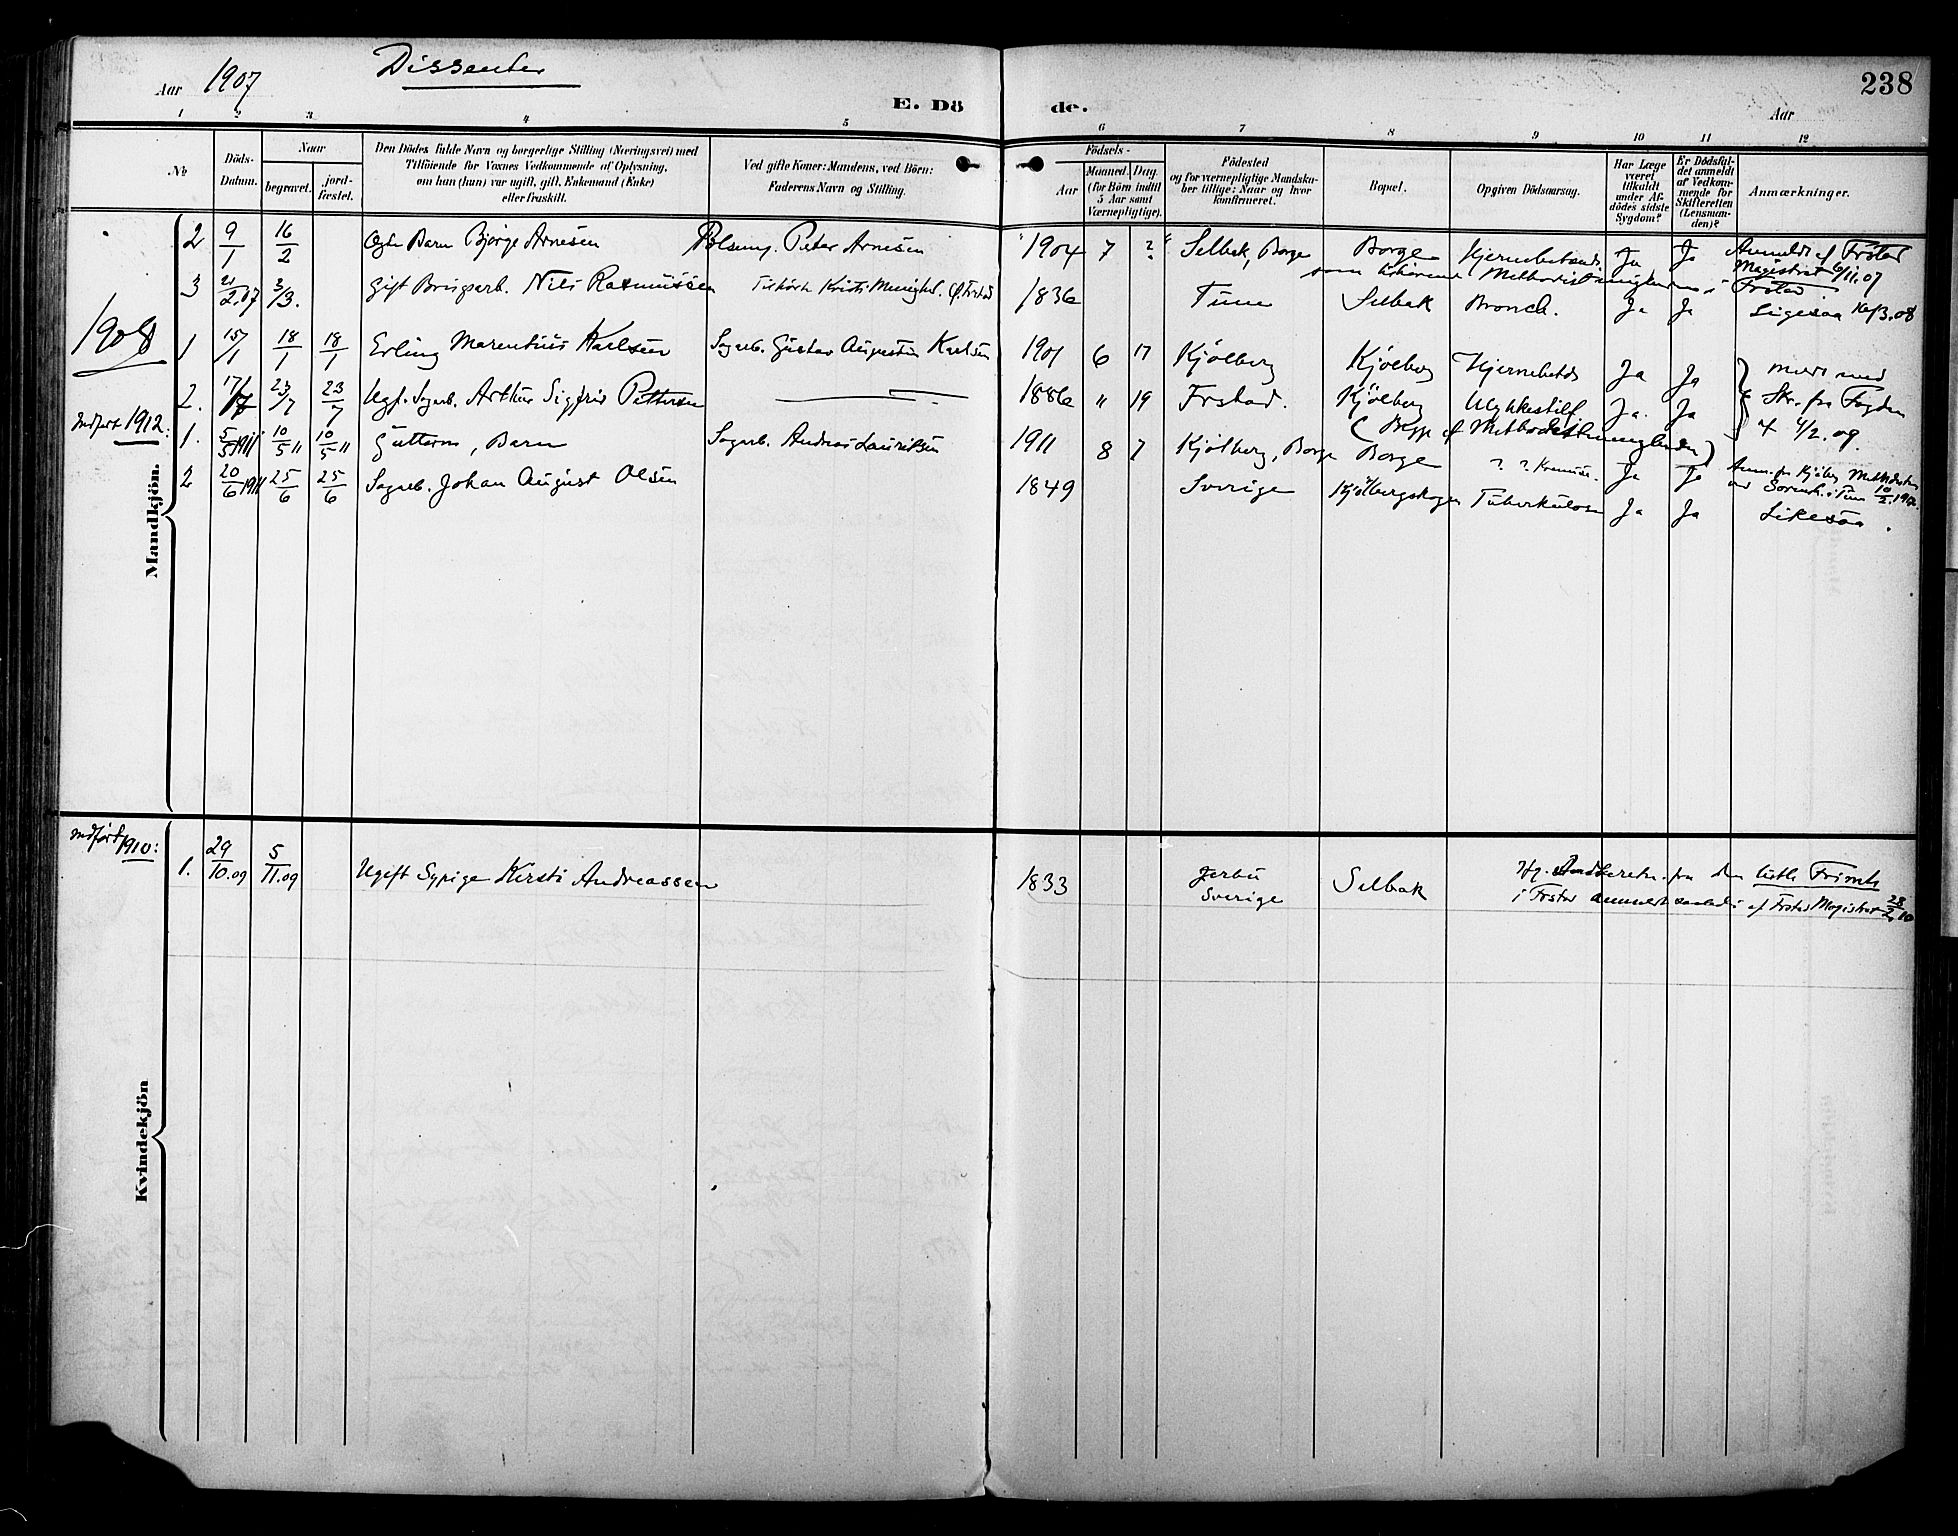 Aar 1907
Dissenter
E. Dö de.
Aar
238
1 2 3 4 5 6 7 8 9 10 11 12
№
Döds-Datum.
Naar
begravet.
jord-fæstet.
Den Dödes fulde Navn og borgerlige Stilling (Næringsvei) med
Tilföiende for Voxnes Vedkommende af Oplysning,
om han (hun) var ugift, gift, Enkemand (Enke)
eller fraskilt.
Ved gifte Koner: Mandens, ved Börn:
Faderens Navn og Stilling.
Födsels-
Aar
Maaned. Dag.
(for Börn indtil
5 Aar samt
Værnepligtige).
Födested
og for værnepligtige Mandska-
ber tillige: Naar og hvor
konfirmeret.
Bopæl.
Opgiven Dödsaarsag.
Har Læge
været
tilkaldt
under Af-
dödes sidste
Sygdom?
Er Dödsfal-
det anmeldt
af Vedkom-
mende for
Skifteretten
(Lensman-
den)?
Anmærkninger.
2 9/1 16/2 Ægte Barn Bjørge Arnesen Peter Arnesen 1904 7 ? Selbak, Borge Borge Hjernebetænd. Ja Ja Anmeldt af Frstad
Magistrat 6/11.07
3 21/2.07 3/3. Gift Brugsarb. Nils Rasmussen Tilhørte Kristi Menighed. af Frstad 1836 Tune Selbak Bronch. Ja Ja Ligesaa 16/3.08
1908
1 15/1 18/1 18/1 Erling Marentius Karlsen Sagarb. Gustav Augustin Karlsen 1901 6 17 Kjølberg Kjølberg Hjernebetds Ja Ja
2. 17/7 23/7 23/7 Ugf. Sagarb. Arthur Sigfrid Pettersen 1886 " 19 Frstad. Kjølberg Ulykkestilf. Ja. Ja Skr. fra Fogden
4/2.09.
Indført 1912:
1. 5/5 1911 10/5 " 10/5 " Guttebarn, Barn Sagarb. Andreas Lauritsen 1911 8 7 Kjølberg, Borge Borge ? ? Ja Ja
2 20/6 1911 25/6 25/6 Sagarb. Johan August Olsen 1849 Sverige Kjølbergskogen Tuberkulose Ja Ja Likesaa.
Mandkjön.
Indført 1910:
1. 29/10.09 5/11.09 Ugift Sypige Kirsti Andreassen 1833 Sverige Selbak
i Frstad af Frstad Magistrat 28/2.10
Kvindekjön